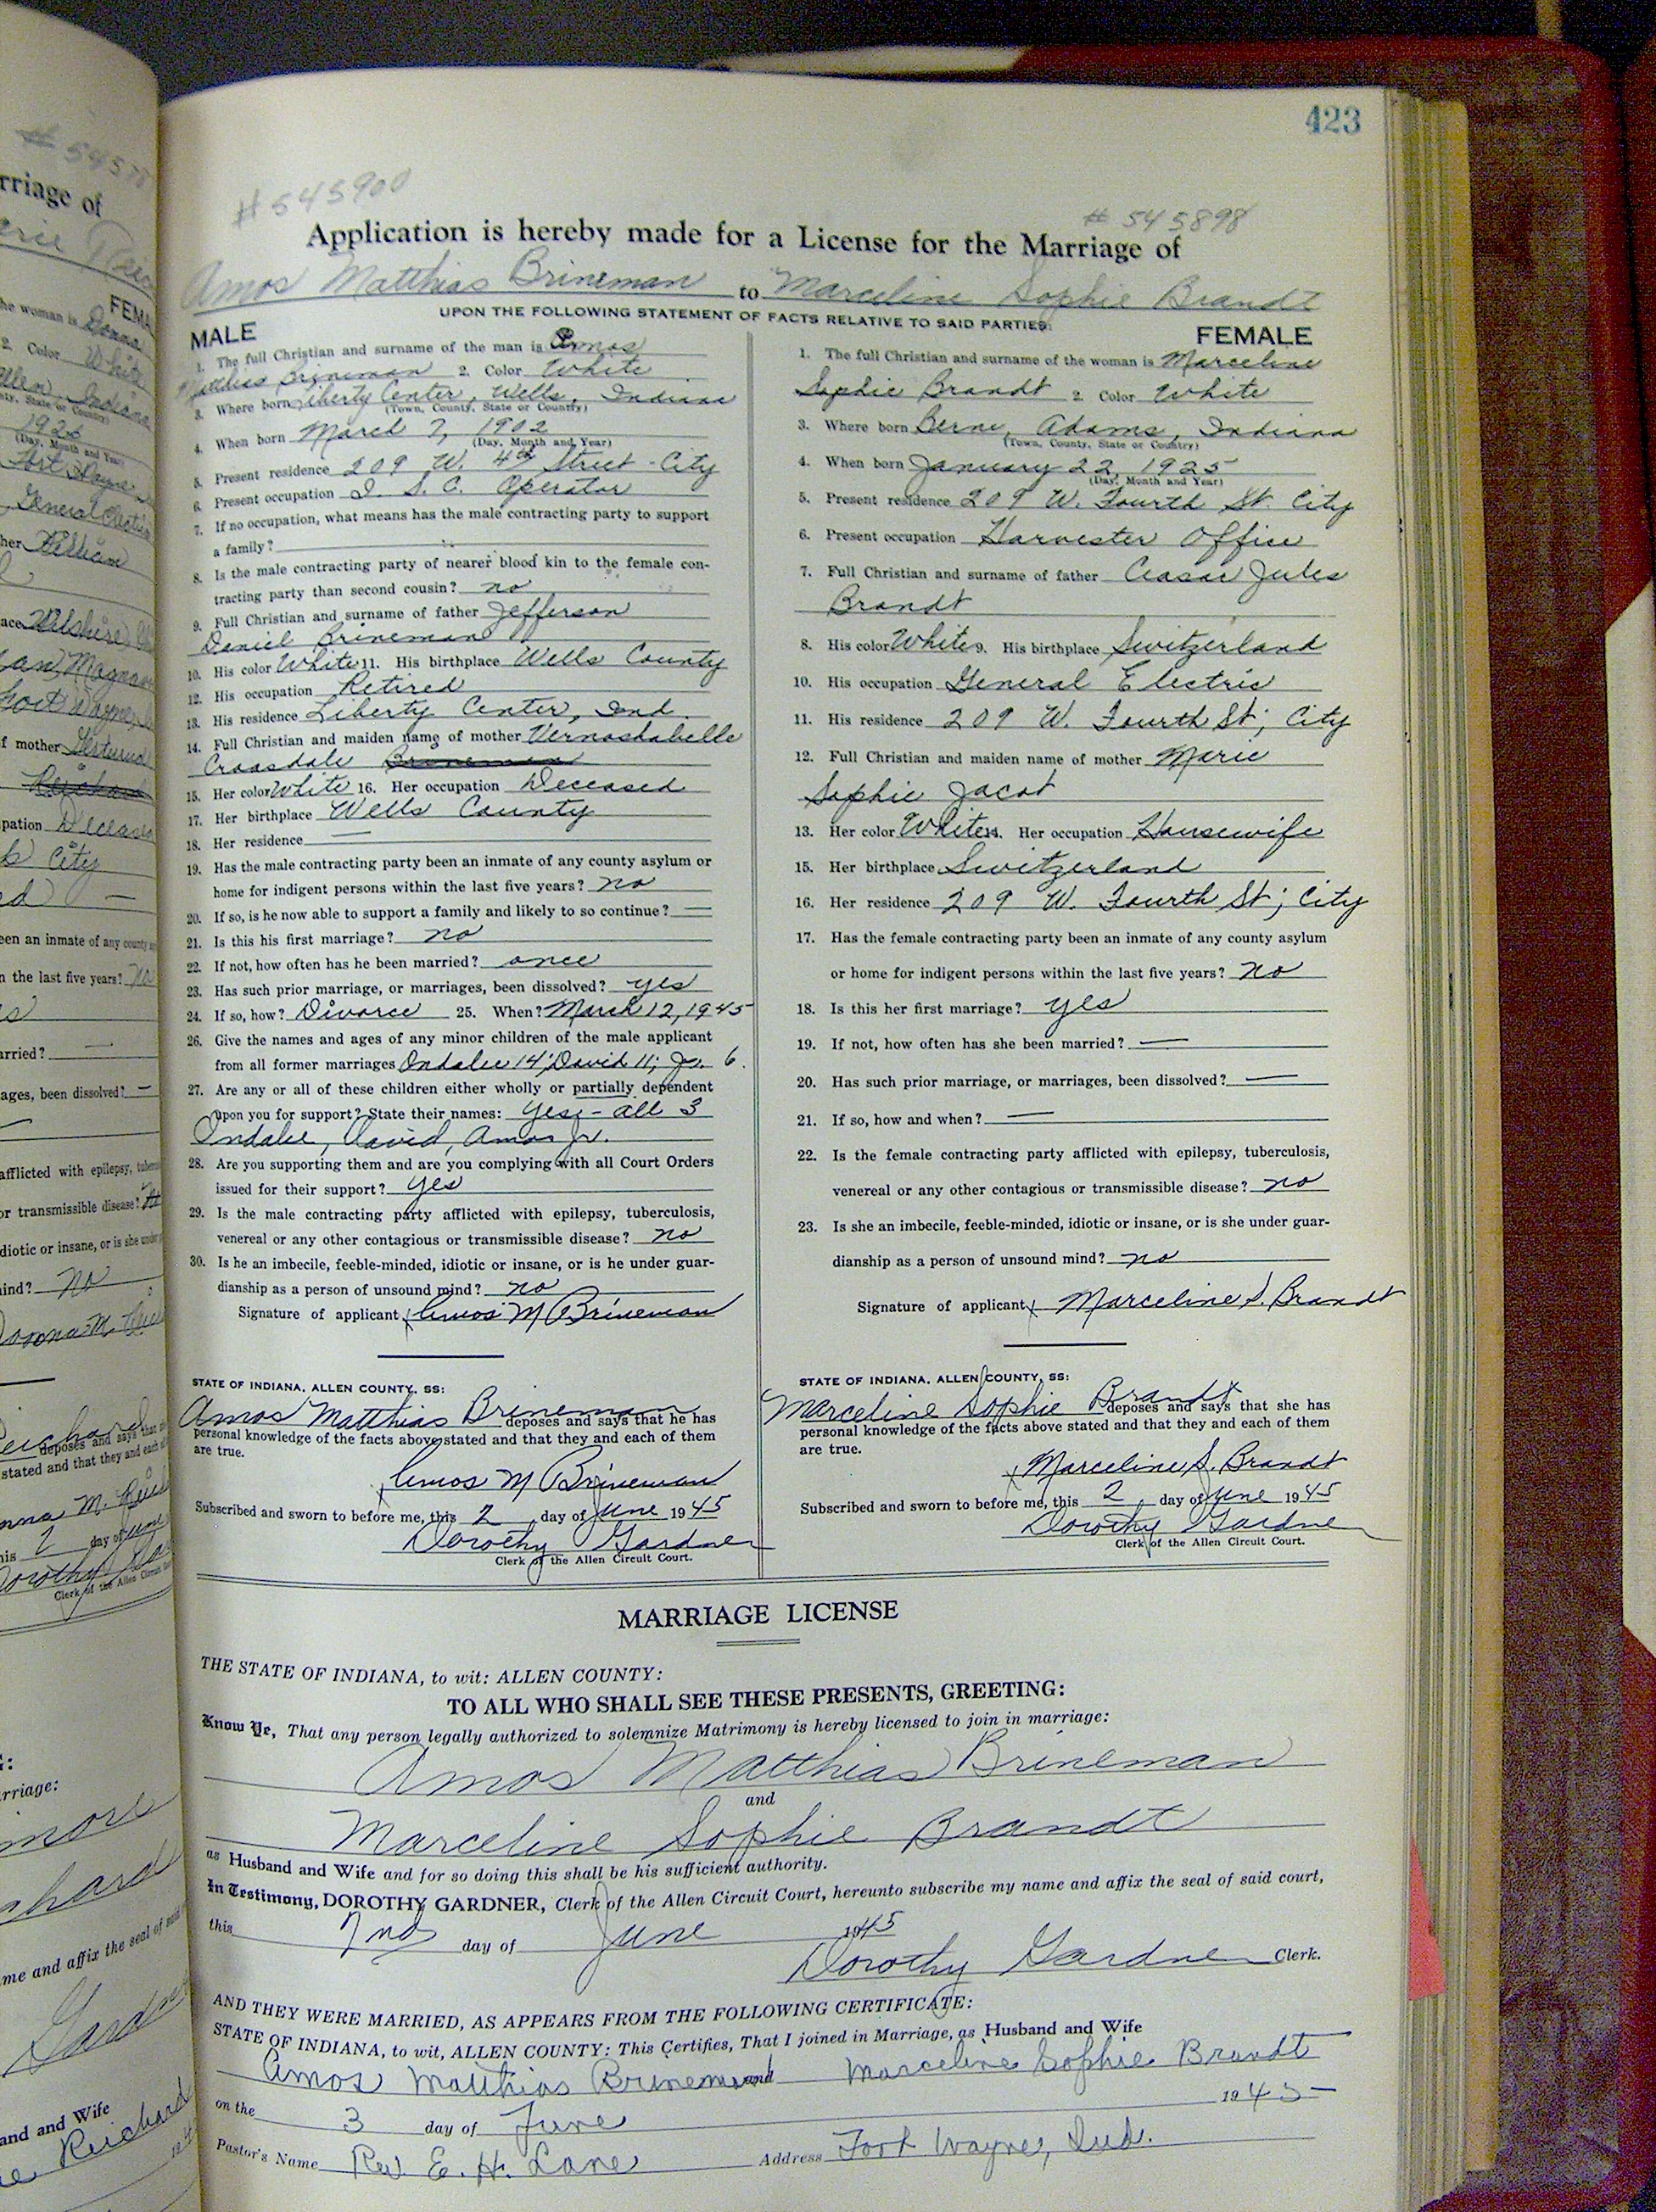 423
#545900
# 545898
Application is hereby made for a License for the Marriage of
Amos Matthias Brineman to Marceline Sophie Brandt
UPON THE FOLLOWING STATEMENT OF FACTS RELATIVE TO SAID PARTIES:
MALE
1. The full Christian and surname of the man is Amos
Matthias Brineman 2. Color White
3. Where born Liberty Center, Wells, Indiana
(Town, County, State or Country)
4. When born March 7, 1902
(Day, Month and Year)
5. Present residence 209 W. 4th Street - City
6. Present occupation I. S. C. Operator
7. If no occupation, what means has the male contracting party to support
a family?
8. Is the male contracting party of nearer blood kin to the female con-
tracting party than second cousin? no
9. Full Christian and surname of father Jefferson
Daniel Brineman
10. His color White 11. His birthplace Wells County
12. His occupation Retired
13. His residence Liberty Center, Ind.
14. Full Christian and maiden name of mother Vernashabelle
Croasdale Brineman
15. Her color White 16. Her occupation Deceased
17. Her birthplace Wells County
18. Her residence —
19. Has the male contracting party been an inmate of any county asylum or
home for indigent persons within the last five years? no
20. If so, is he now able to support a family and likely to so continue? —
21. Is this his first marriage? no
22. If not, how often has he been married? once
23. Has such prior marriage, or marriages, been dissolved? yes
24. If so, how? Divorce 25. When? March 12, 1945
26. Give the names and ages of any minor children of the male applicant
from all former marriages Ondalee 14; David 11; Jr. 6.
27. Are any or all of these children either wholly or partially dependent
upon you for support? State their names: Yes - all 3
Ondalee, David, Amos Jr.
28. Are you supporting them and are you complying with all Court Orders
issued for their support? yes
29. Is the male contracting party afflicted with epilepsy, tuberculosis,
venereal or any other contagious or transmissible disease? no
30. Is he an imbecile, feeble-minded, idiotic or insane, or is he under guar-
dianship as a person of unsound mind? no
Signature of applicant x Amos M Brineman
STATE OF INDIANA, ALLEN COUNTY, SS:
Amos Matthias Brineman deposes and says that he has
personal knowledge of the facts above stated and that they and each of them
are true.
x Amos M Brineman
Subscribed and sworn to before me, this 2 day of June 1945
Dorothy Gardner
Clerk of the Allen Circuit Court.
FEMALE
1. The full Christian and surname of the woman is Marceline
Sophie Brandt 2. Color White
3. Where born Berne, Adams, Indiana
(Town, County, State or Country)
4. When born January 22, 1925
(Day, Month and Year)
5. Present residence 209 W. Fourth St. City
6. Present occupation Harvester Office
7. Full Christian and surname of father Ceasar Jules
Brandt
8. His color White 9. His birthplace Switzerland
10. His occupation General Electric
11. His residence 209 W. Fourth St; City
12. Full Christian and maiden name of mother Marie
Sophie Jacot
13. Her color White 14. Her occupation Housewife
15. Her birthplace Switzerland
16. Her residence 209 W. Fourth St; City
17. Has the female contracting party been an inmate of any county asylum
or home for indigent persons within the last five years? no
18. Is this her first marriage? yes
19. If not, how often has she been married? —
20. Has such prior marriage, or marriages, been dissolved? —
21. If so, how and when? —
22. Is the female contracting party afflicted with epilepsy, tuberculosis,
venereal or any other contagious or transmissible disease? no
23. Is she an imbecile, feeble-minded, idiotic or insane, or is she under guar-
dianship as a person of unsound mind? no
Signature of applicant x Marceline S. Brandt
STATE OF INDIANA, ALLEN COUNTY, SS:
Marceline Sophie Brandt deposes and says that she has
personal knowledge of the facts above stated and that they and each of them
are true.
x Marceline S. Brandt
Subscribed and sworn to before me, this 2 day of June 1945
Dorothy Gardner
Clerk of the Allen Circuit Court.
MARRIAGE LICENSE
THE STATE OF INDIANA, to wit: ALLEN COUNTY:
TO ALL WHO SHALL SEE THESE PRESENTS, GREETING:
Know Ye, That any person legally authorized to solemnize Matrimony is hereby licensed to join in marriage:
Amos Matthias Brineman
and
Marceline Sophie Brandt
as Husband and Wife and for so doing this shall be his sufficient authority.
In Testimony, DOROTHY GARDNER, Clerk of the Allen Circuit Court, hereunto subscribe my name and affix the seal of said court,
this 2nd day of June 1945
Dorothy Gardner Clerk.
AND THEY WERE MARRIED, AS APPEARS FROM THE FOLLOWING CERTIFICATE:
STATE OF INDIANA, to wit, ALLEN COUNTY: This Certifies, That I joined in Marriage, as Husband and Wife
Amos Matthias Brineman and Marceline Sophie Brandt
on the 3 day of June 1945
Pastor's Name Rev. E. H. Lane Address Fort Wayne, Ind.